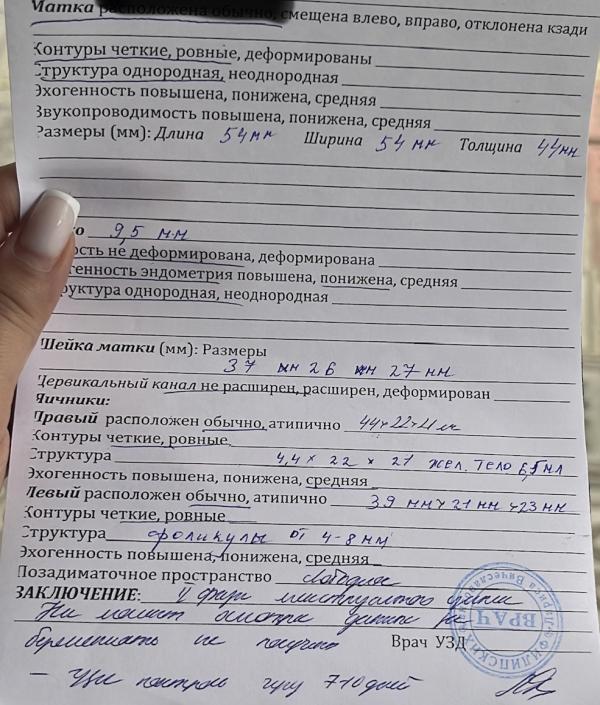 Матка расположена обычно, смещена влево, вправо, отклонена кзади
Контуры четкие, ровные, деформированы
Структура однородная, неоднородная
Эхогенность повышена, понижена, средняя
Звукопроводимость повышена, понижена, средняя
Размеры (мм): Длина 54 мм Ширина 54 мм Толщина 44 мм
9,5 мм
ость не деформирована, деформирована
генность эндометрия повышена, понижена, средняя
руктура однородная, неоднородная
Шейка матки (мм): Размеры
37 мм 26 мм 27 мм
Цервикальный канал не расширен, расширен, деформирован
Яичники:
Правый расположен обычно, атипично 44×22×21 мм
Контуры четкие, ровные
Структура 4,4 × 22 × 21 жел. тело 6,5 мл
Эхогенность повышена, понижена, средняя
Левый расположен обычно, атипично 39 мм × 21 мм × 23 мм
Контуры четкие, ровные
Структура фоликулы от 4-8 мм
Эхогенность повышена, понижена, средняя
Позадиматочное пространство свободное
ЗАКЛЮЧЕНИЕ: II фаза менструального цикла
На момент осмотра данных за
беременность не получено Врач УЗД
– УЗИ контроль через 7-10 дней
ВРАЧ